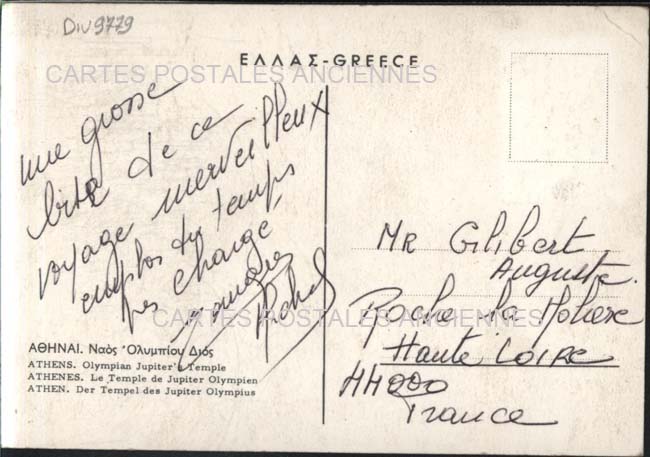 Div 9779
ΕΛΛΑΣ-GREECE
CARTES POSTALES ANCIENNES
une grosse
bise de ce
voyage merveilleux
du temps
pas changé,
Mr Gilibert
Auguste
Roche la Molière
Haute Loire
France
CARTES POSTALES ANCIENNES
ΑΘΗΝΑΙ. Ναὸς Ὀλυμπίου Διός
ATHENS. Olympian Jupiter's Temple
ATHENES. Le Temple de Jupiter Olympien
ATHEN. Der Tempel des Jupiter Olympius